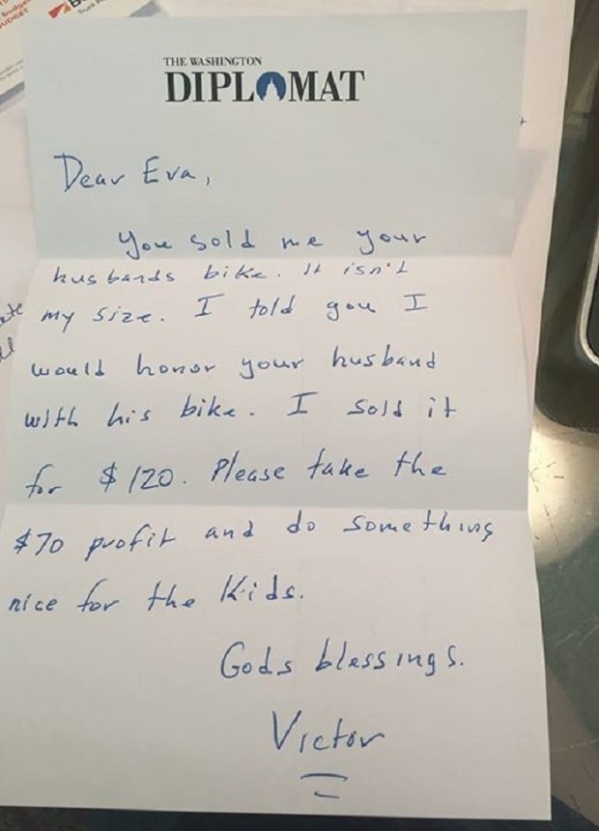 THE WASHINGTON
DIPLOMAT
Dear Eva,
You sold me your
husbands bike. It isn't
my size. I told you I
would honor your husband
with his bike. I sold it
for $120. Please take the
$70 profit and do something
nice for the Kids.
Gods blessings.
Victor